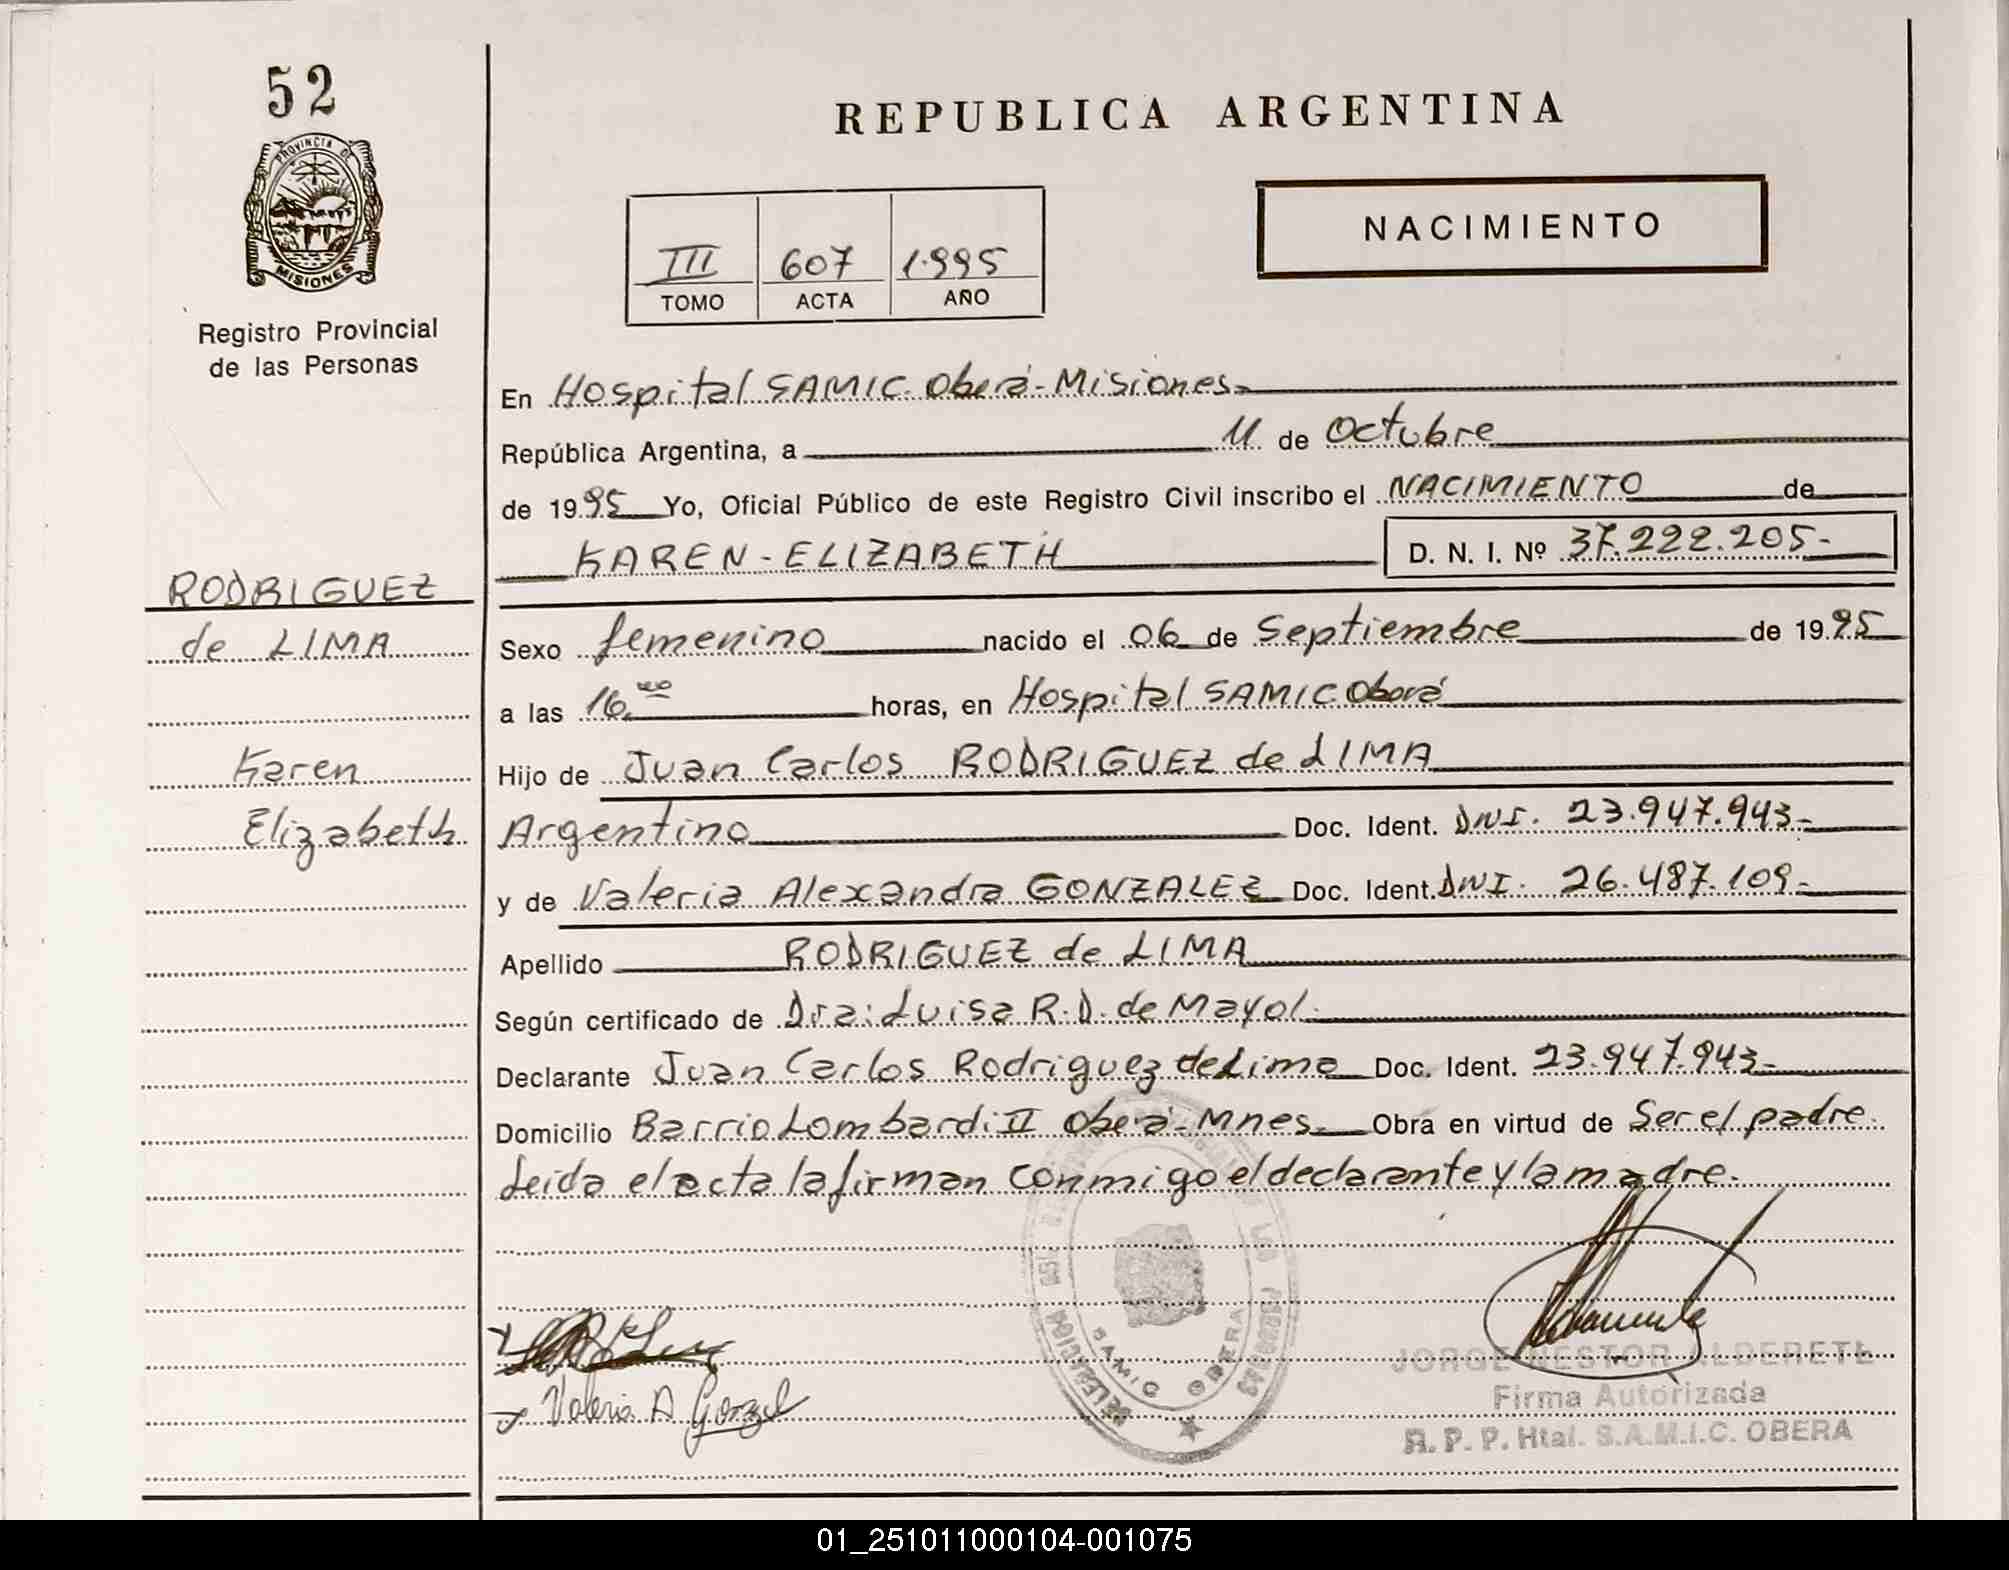 52
PROVINCIA DE
MISIONES
Registro Provincial
de las Personas
RODRIGUEZ
de LIMA
Karen
Elizabeth
REPUBLICA ARGENTINA
III 607 1.995
TOMO ACTA AÑO
NACIMIENTO
En Hospital SAMIC. Oberá - Misiones
República Argentina, a 11 de Octubre
de 1995 Yo, Oficial Público de este Registro Civil inscribo el NACIMIENTO de
KAREN - ELIZABETH D. N. I. Nº 37.222.205-
Sexo femenino nacido el 06 de Septiembre de 1995
a las 16,00 horas, en Hospital SAMIC Oberá
Hijo de Juan Carlos RODRIGUEZ de LIMA
Argentino Doc. Ident. DNI. 23.947.943-
y de Valeria Alexandra GONZALEZ Doc. Ident. DNI. 26.487.109-
Apellido RODRIGUEZ de LIMA
Según certificado de Dra: Luisa R. D. de Mayol.
Declarante Juan Carlos Rodriguez de Lima Doc. Ident. 23.947.943-
Domicilio Barrio Lombardi II Oberá - Mnes. Obra en virtud de Ser el padre.
Leida el acta la firman conmigo el declarante y la madre.
DELEGACION
SAMIC OBERA
Valeria A Gonzal
JORGE NESTOR ALDERETE
Firma Autorizada
R. P. P. Htal. S.A.M.I.C. OBERA
01_251011000104-001075